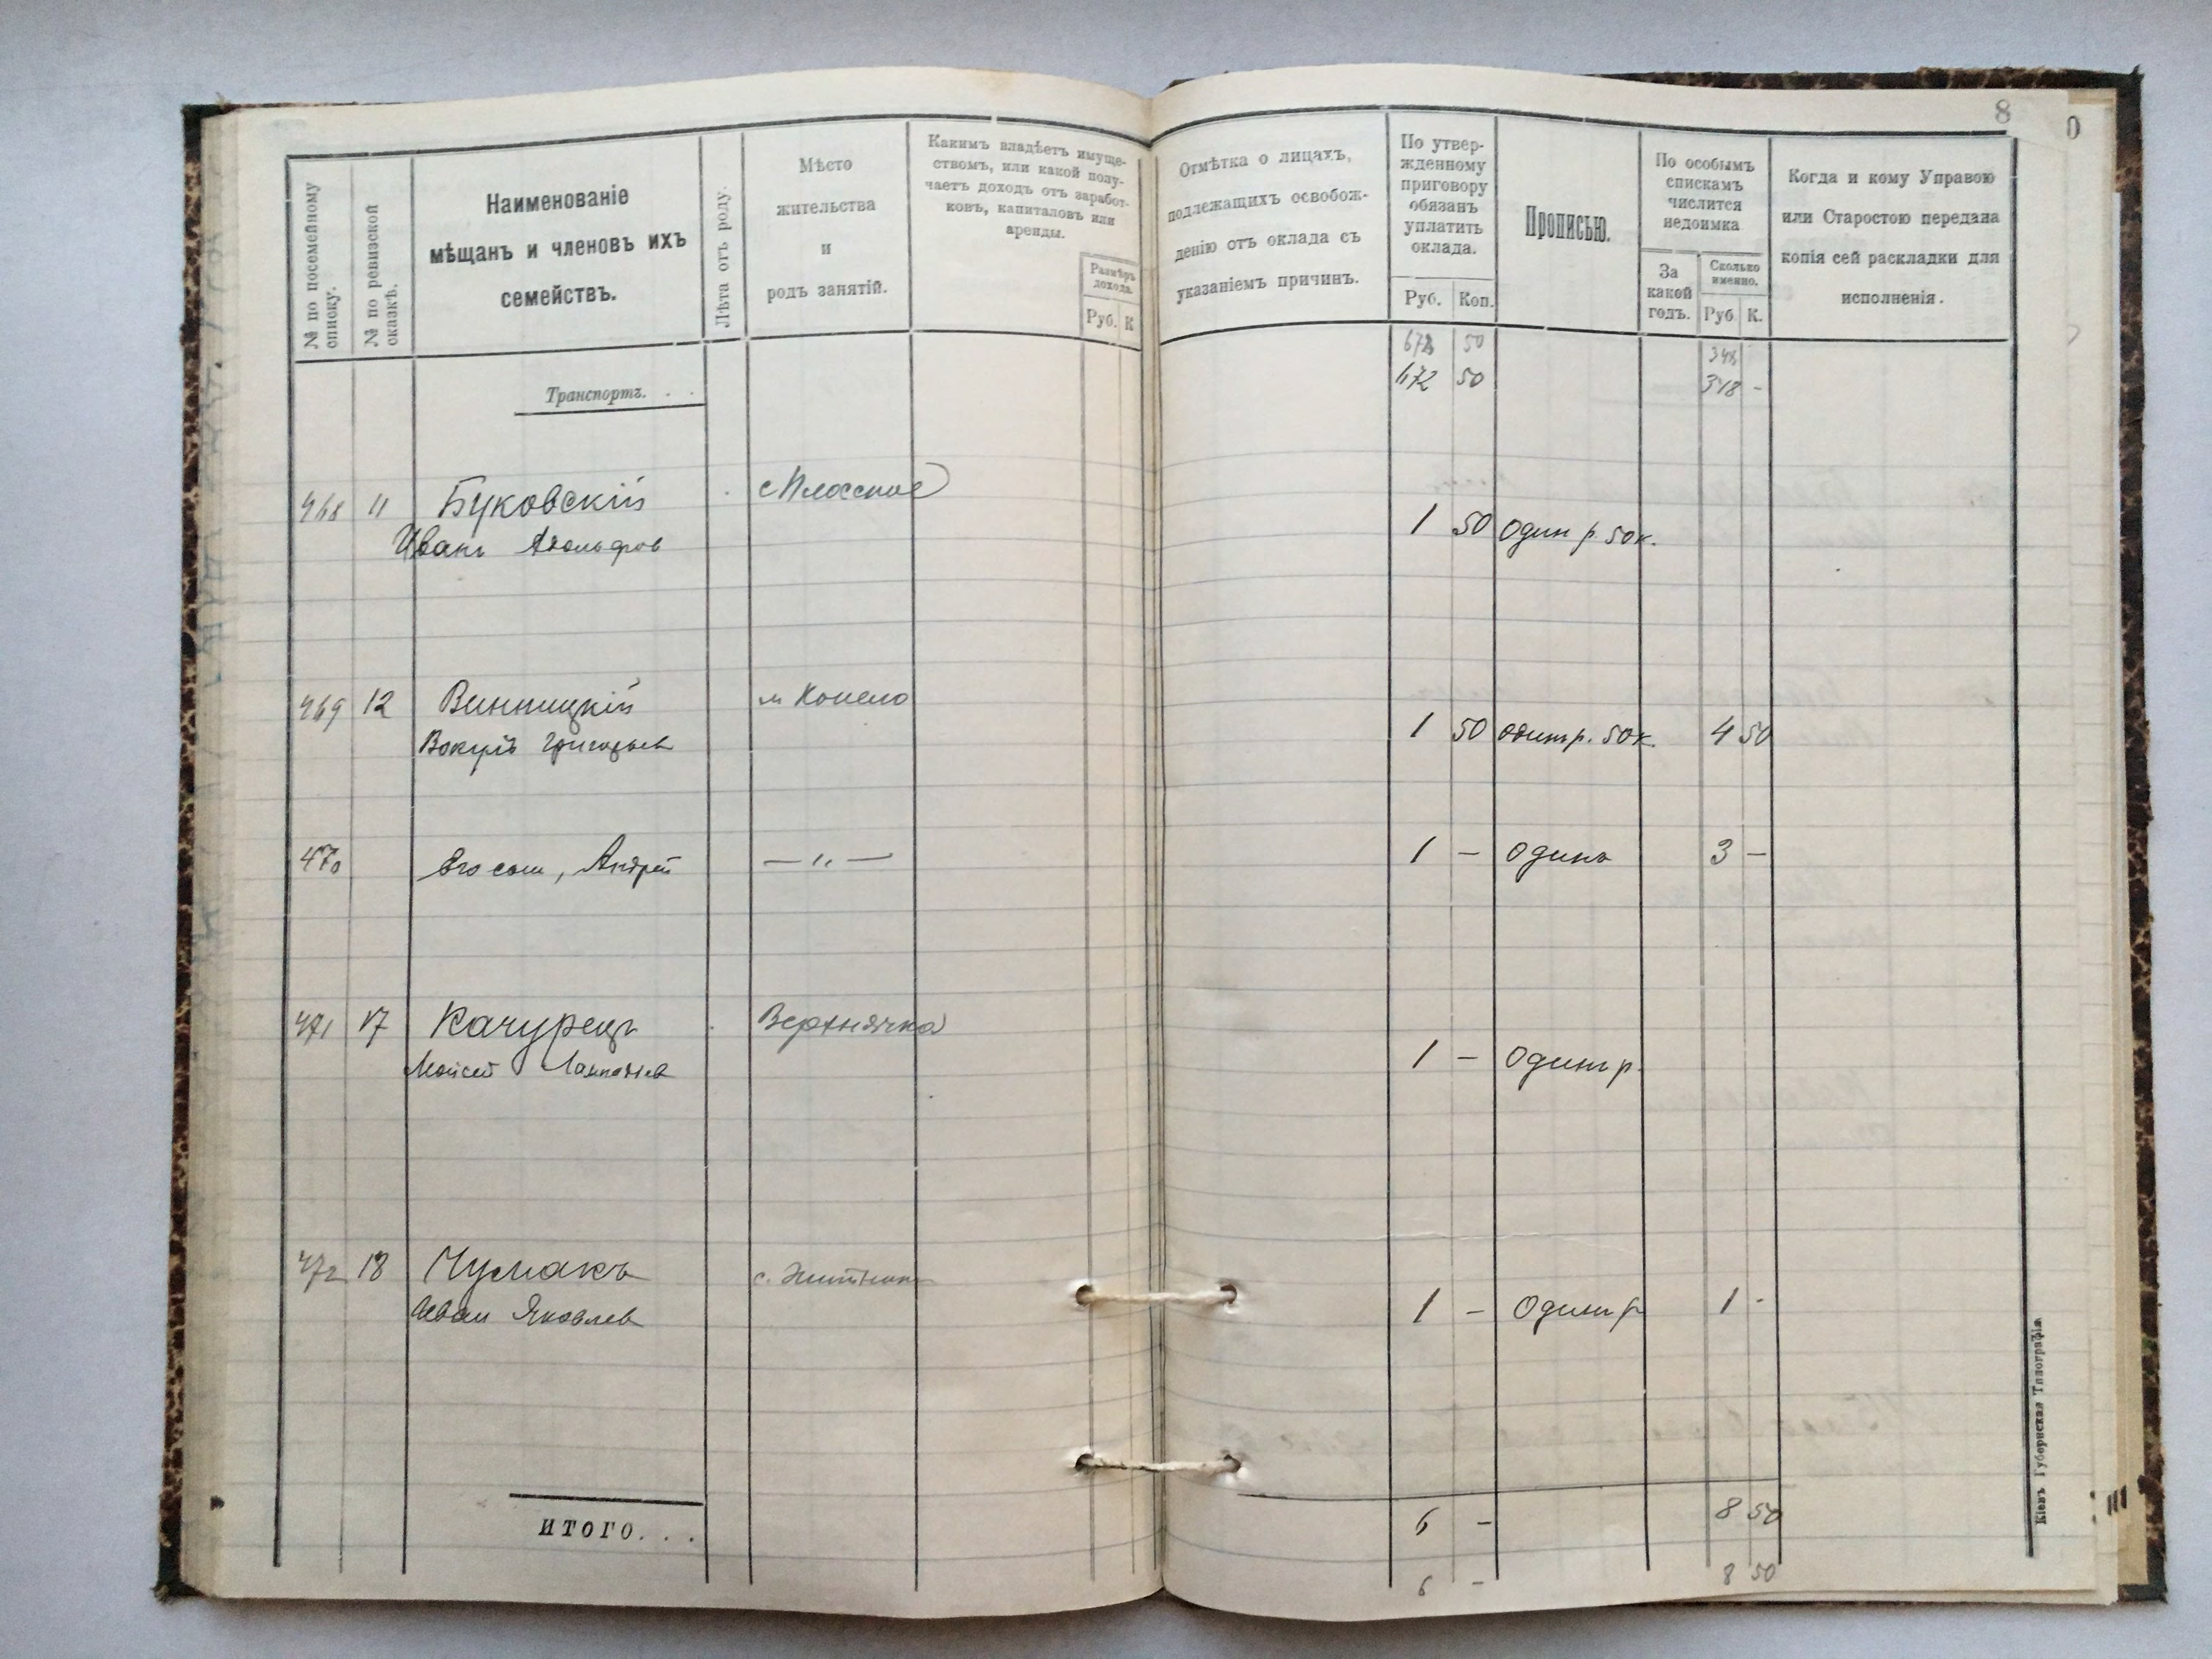 8
0
№ по посемейному списку.
№ по ревизской сказкѣ.
Наименованіе
мѣщанъ и членовъ ихъ
семействъ.
Лѣта отъ роду.
Мѣсто
жительства
и
родъ занятій.
Какимъ владѣетъ имуще-
ствомъ, или какой полу-
чаетъ доходъ отъ заработ-
ковъ, капиталовъ или
аренды.
Размѣръ
дохода.
Руб. К
Отмѣтка о лицахъ,
подлежащихъ освобож-
денію отъ оклада съ
указаніемъ причинъ.
По утвер-
жденному
приговору
обязанъ
уплатить
оклада.
Руб. Коп.
Прописью.
По особымъ
спискамъ
числится
недоимка
За
какой
годъ.
Сколько
именно.
Руб К.
Когда и кому Управою
или Старостою передана
копія сей раскладки для
исполненія.
672 50 348
Транспортъ. . . 672 50 348 -
468 11 Буковскій с Плоское
Иванъ Адольфов 1 50 один р. 50 к.
469 12 Винницкій м Конела
Григорьев 1 50 один р. 50 к. 4 50
470 Его сын, Андрей — „ — 1 — один 3 —
471 17 Качурецъ Верхнячка
Мойсей 1 — Один р.
472 18 Чумакъ с.
Иван Яковлев 1 — Один р 1 -
ИТОГО. . . 6 — 8 50
6 — 8 50
Кіевъ Губернская Типографія